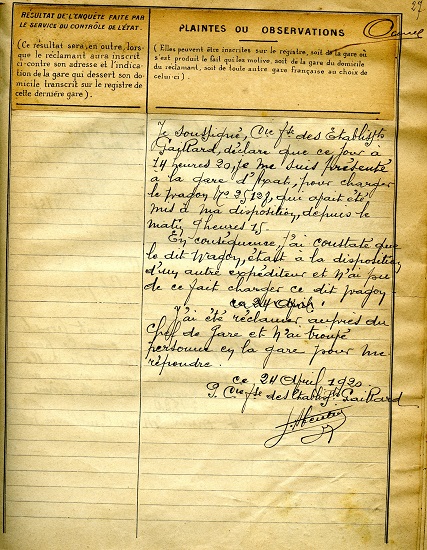 27
RÉSULTAT DE L'ENQUÊTE FAITE PAR
LE SERVICE DU CONTRÔLE DE L'ÉTAT.
(Ce résultat sera, en outre, lors-
que le réclamant aura inscrit
ci-contre son adresse et l'indica-
tion de la gare qui dessert son do-
micile transcrit sur le registre de
cette dernière gare).
PLAINTES OU OBSERVATIONS
(Elles peuvent être inscrites sur le registre, soit de la gare où
s'est produit le fait qui les motive, soit de la gare du domicile
du réclamant, soit de toute autre gare française au choix de
celui-ci).
Je soussigné, Cre fse des EtablisSts
Gaillard, déclare que ce jour à
14 heures 20, je me suis présenté
à la gare d'Axat, pour charger
le wagon No 25127, qui avait été
mis à ma disposition, depuis le
matin 9 heures 15.
En conséquence, j'ai constaté que
le dit wagon, était à la disposition
d'un autre expéditeur et n'ai pu
de ce fait charger ce dit wagon
ce 24 April!
J'ai été réclamer auprès du
Chef de Gare et n'ai trouvé
personne en la gare pour me
répondre.
ce 24 April 1920
P. Cre fse des Etablisgts Gaillard